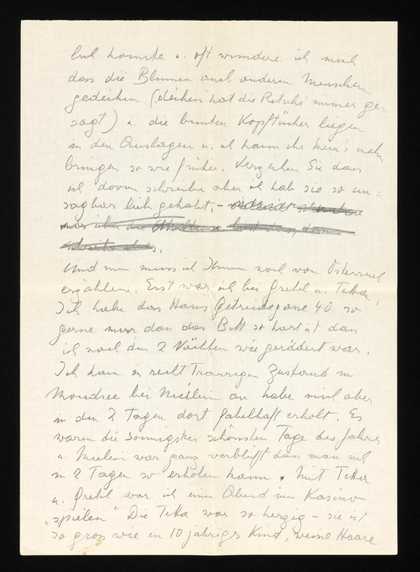 und oft wundere ich mich
dass die Blumen auch anderen Menschen
gedeihen (deihen hat die immer ge-
sagt) u. die bunten Kopftücher liegen
in den Auslagen u. ich kann ihr keins mehr
bringen so wie früher. Verzeihen Sie dass
ich davon schreibe aber ich hab sie so un-
saglich lieb gehabt, –
Und nun muss ich Ihnen noch von Österreich
erzählen. Erst war ich bei Gretl u.
Ich habe das Haus Getreidegasse 40 so
gerne nur dass das Bett so hart ist dass
ich nach den 2 Nächten wie gerädert war.
Ich kam in recht traurigem Zustand in
Mondsee bei an habe mich aber
in den 2 Tagen dort fabelhaft erholt. Es
waren die sonnigsten schönsten Tage des Jahres
u. war ganz verblüfft dass man sich
in 2 Tagen so erholen kann. Mit
u. Gretl war ich einen Abend im Kasino
"spielen" Die war so herzig – sie ist
so gross wie ein 10 jähriges Kind, weisse Haare